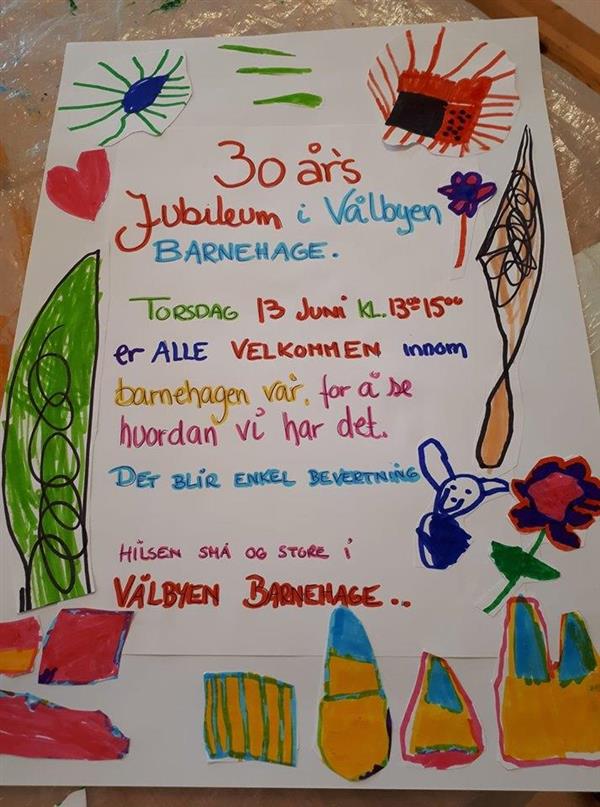 30 år's
Jubileum i Vålbyen
BARNEHAGE.
TORSDAG 13 JUNI KL. 13⁰⁰ 15⁰⁰
er ALLE VELKOMMEN innom
barnehagen vår, for å se
hvordan vi har det.
DET BLIR ENKEL BEVERTNING
HILSEN SMÅ OG STORE i
VÅLBYEN BARNEHAGE..